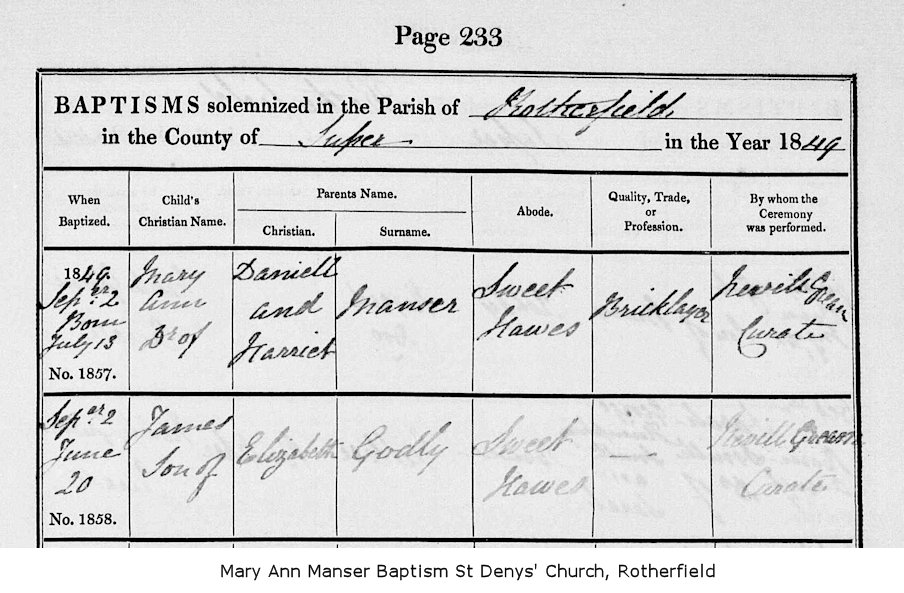 Page 233
BAPTISMS solemnized in the Parish of Rotherfield
in the County of Sussex in the Year 1849
When Baptized.
Child's Christian Name.
Parents Name.
Christian.
Surname.
Abode.
Quality, Trade, or Profession.
By whom the Ceremony was performed.
1849.
Seper 2
Born
July 13
No. 1857.
Mary
Ann
Dr of
Daniell
and
Harriet
Manser
Sweet
Hawes
Bricklayer
Nevill
Curate
Seper 2
June
20
No. 1858.
James
Son of
Elizabeth
Godly
Sweet
Hawes
Nevill
Curate
Mary Ann Manser Baptism St Denys' Church, Rotherfield